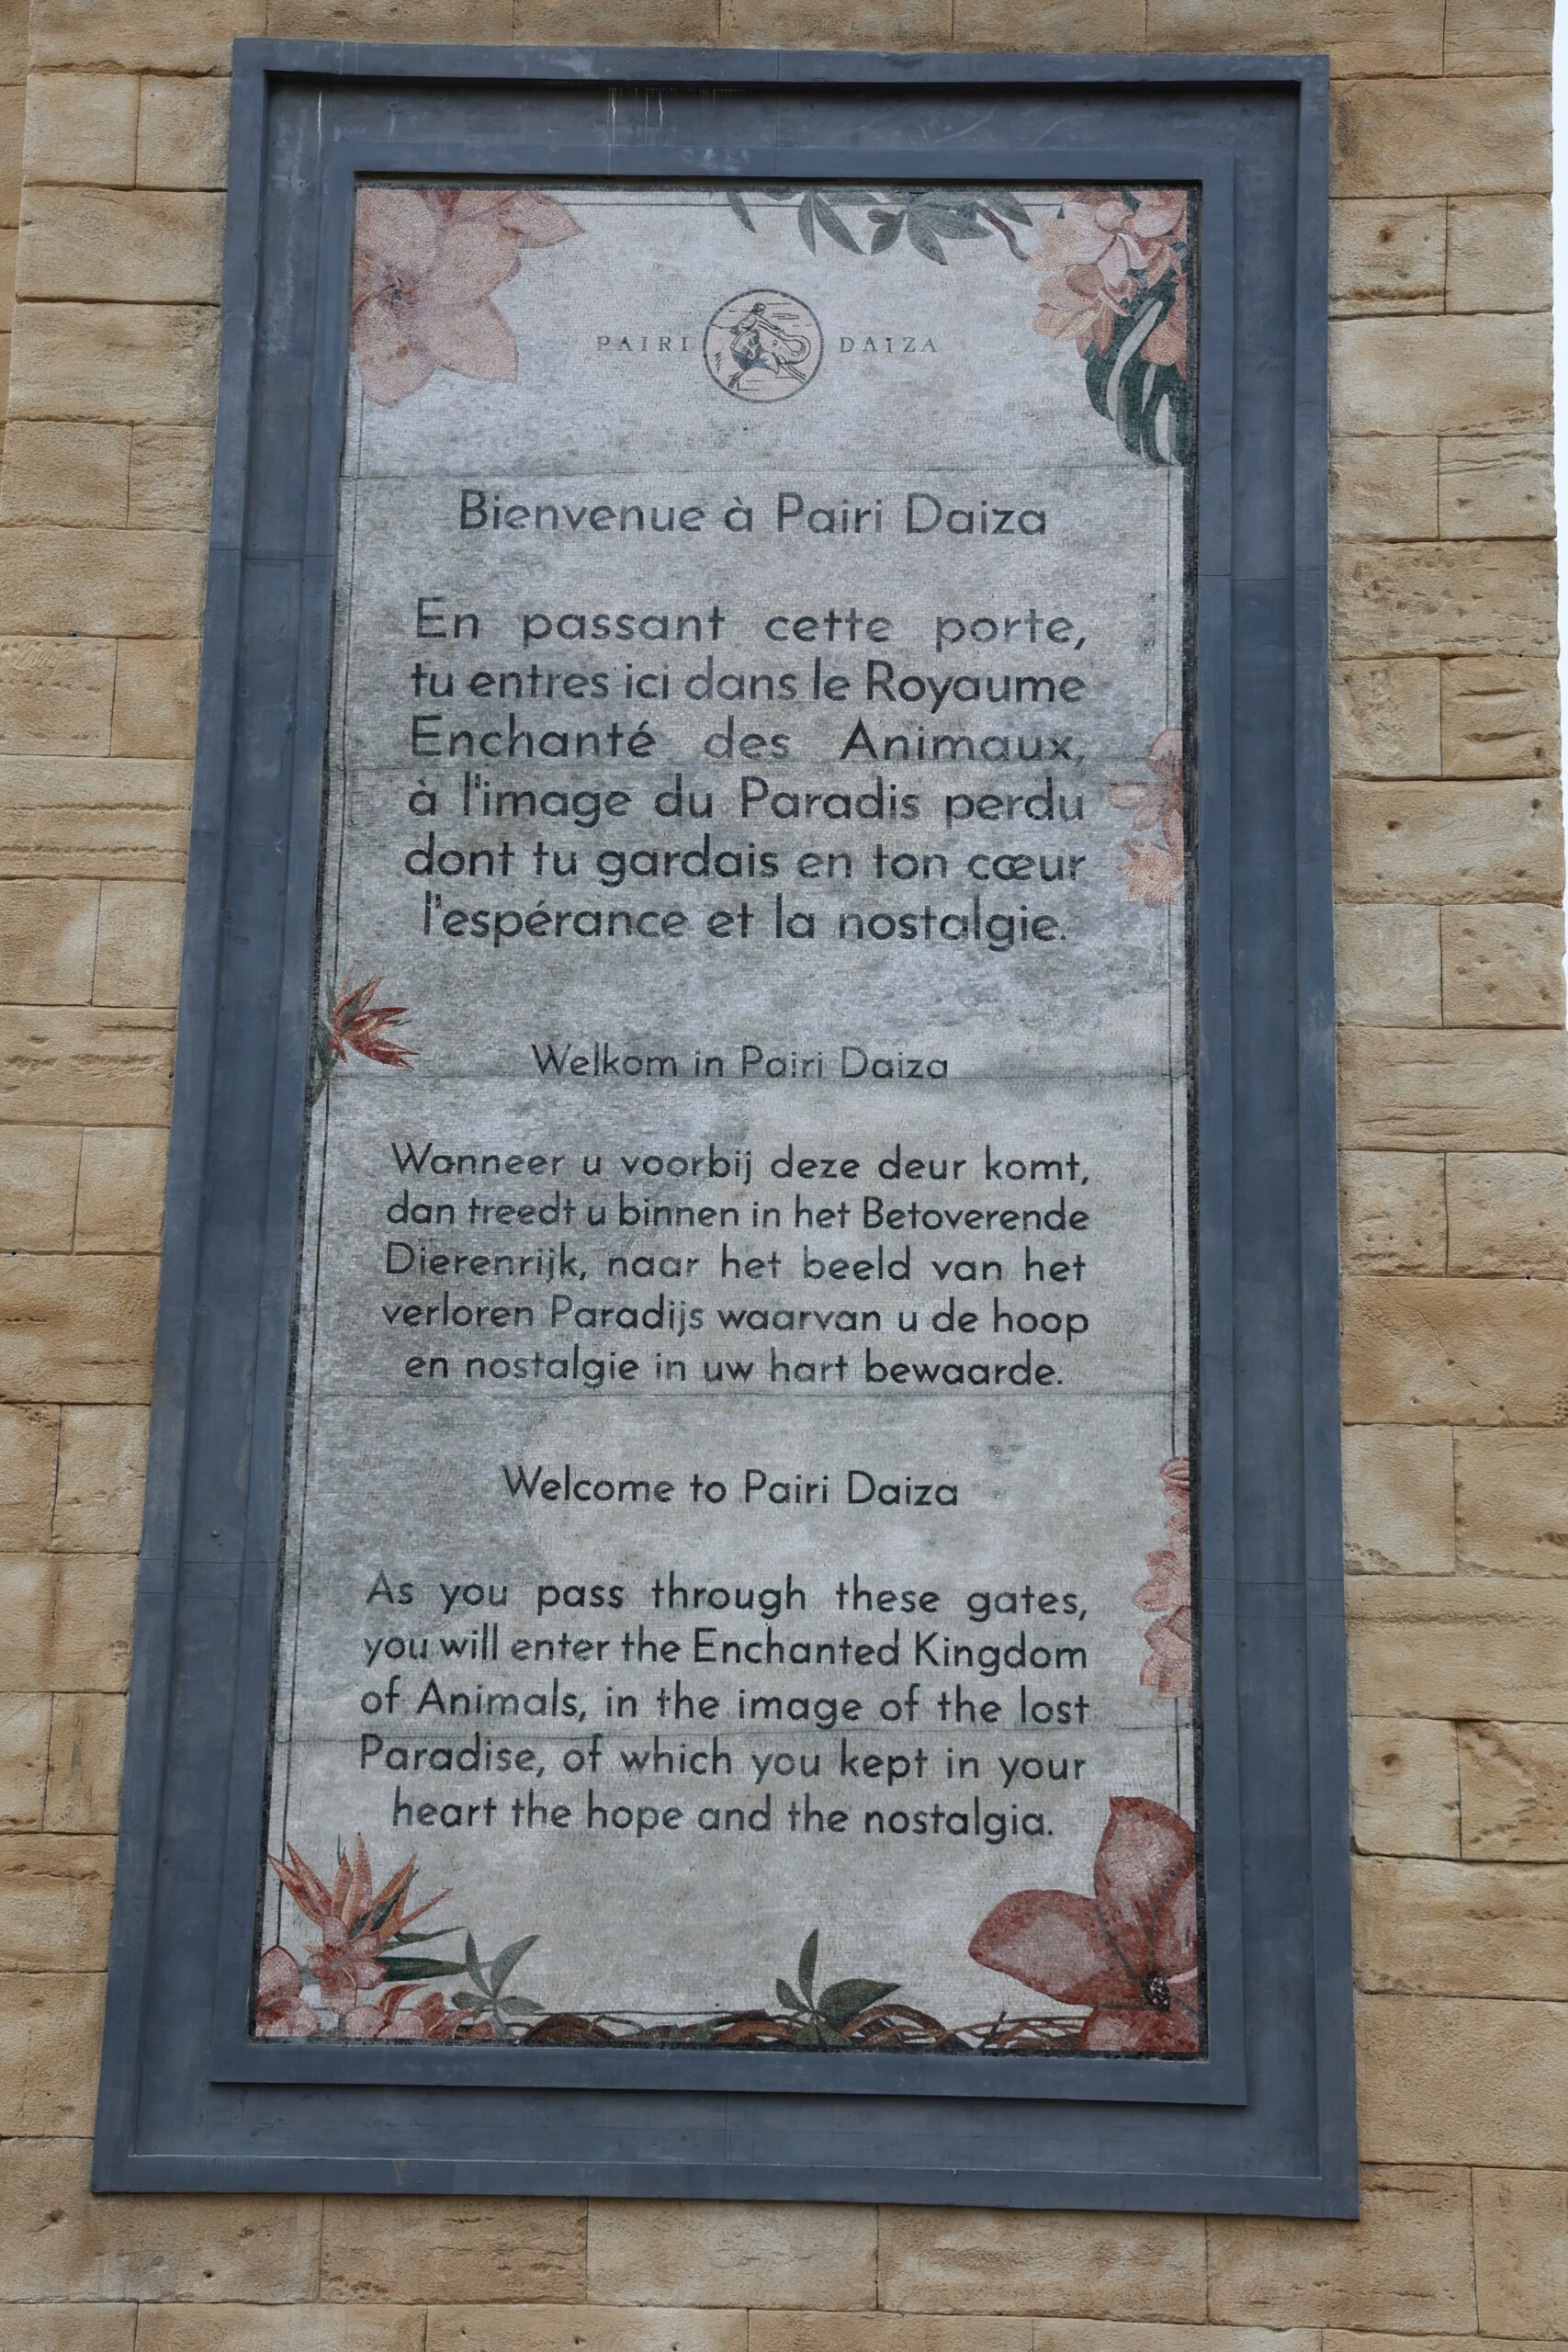 PAIRI DAIZA
Bienvenue à Pairi Daiza
En passant cette porte,
tu entres ici dans le Royaume
Enchanté des Animaux,
à l'image du Paradis perdu
dont tu gardais en ton cœur
l'espérance et la nostalgie.
Welkom in Pairi Daiza
Wanneer u voorbij deze deur komt,
dan treedt u binnen in het Betoverende
Dierenrijk, naar het beeld van het
verloren Paradijs waarvan u de hoop
en nostalgie in uw hart bewaarde.
Welcome to Pairi Daiza
As you pass through these gates,
you will enter the Enchanted Kingdom
of Animals, in the image of the lost
Paradise, of which you kept in your
heart the hope and the nostalgia.